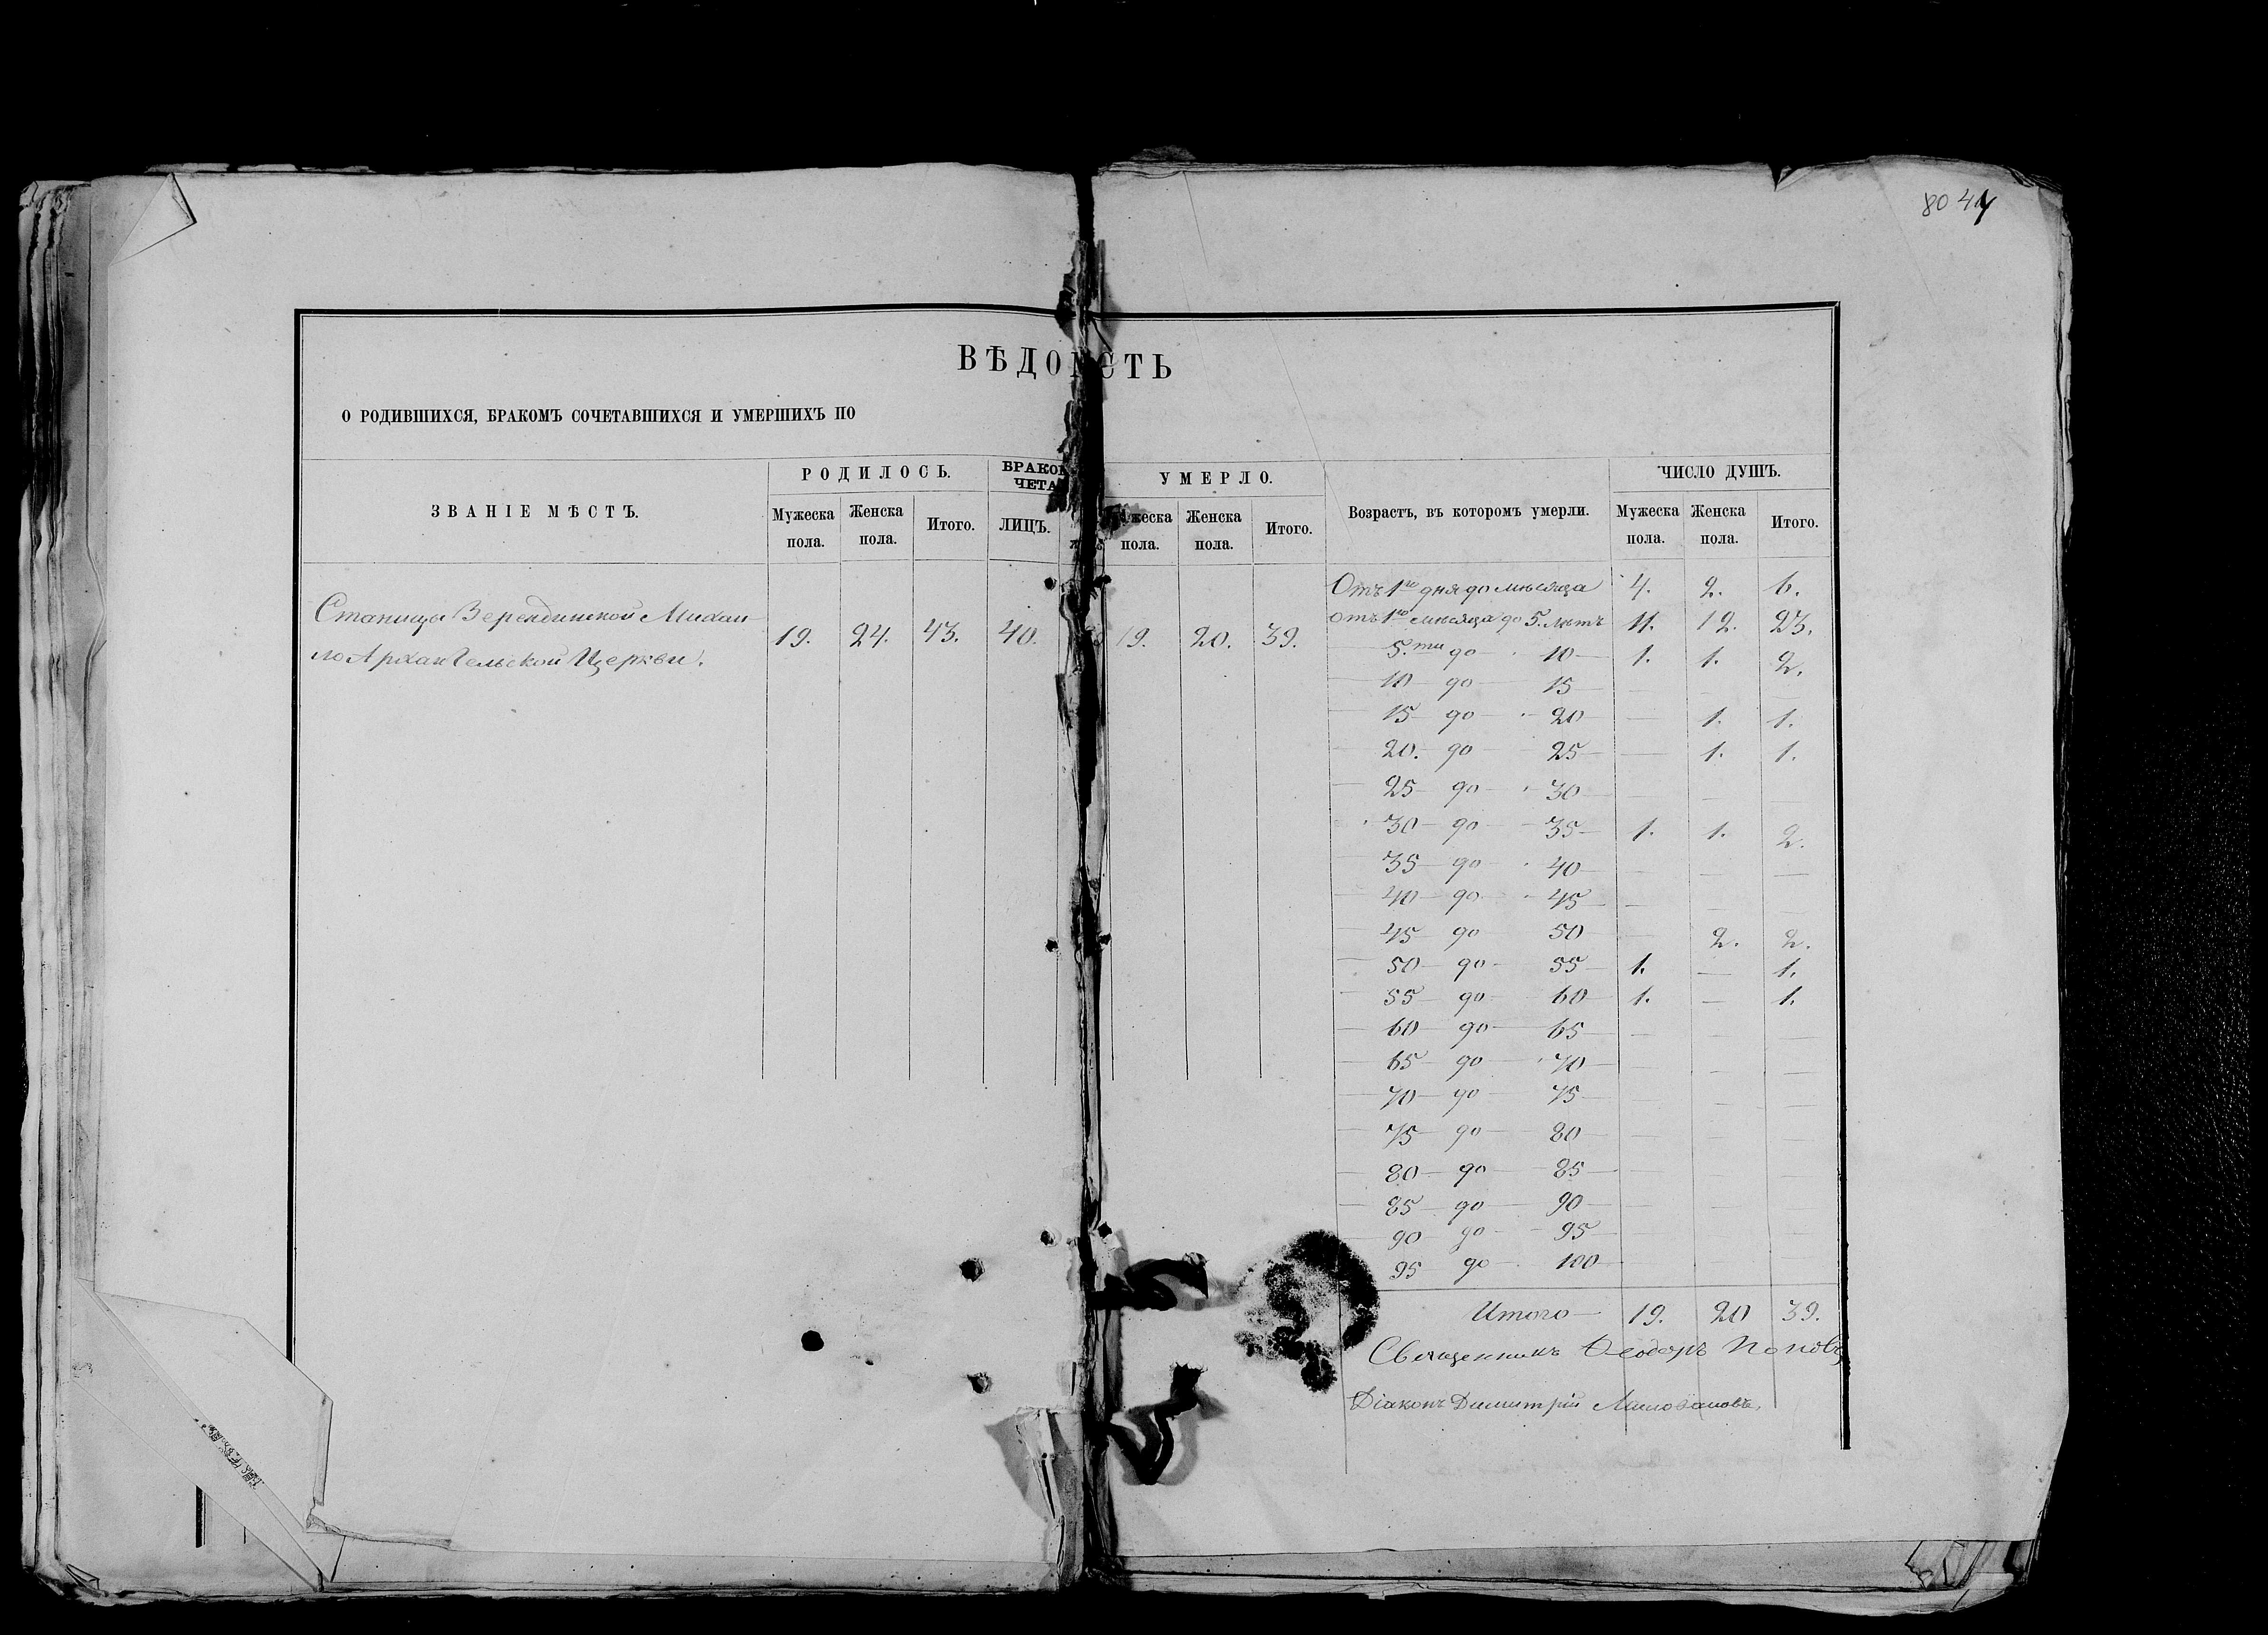 ВѢДОМОСТЬ
О РОДИВШИХСЯ, БРАКОМЪ СОЧЕТАВШИХСЯ И УМЕРШИХЪ ПО
ЗВАНІЕ МѢСТЪ.
РОДИЛОСЬ.
Мужеска пола.
Женска пола.
Итого.
ЛИЦЪ.
УМЕРЛО.
Женска пола.
Итого.
Возрастъ, въ которомъ умерли.
ЧИСЛО ДУШЪ.
Мужеска пола.
Женска пола.
Итого.
Станицы Верендинской Михаи-
ло Архангельской Церкви.
19. 24. 43. 40. 19. 20. 39.
Отъ 1го дня до мѣсяца 4. 2. 6.
отъ 1го мѣсяца до 5. лѣтъ 11. 12. 23.
5.ти до 10 1. 1. 2.
10 до 15 — — —
15 до 20 — 1. 1.
20. до 25 — 1. 1.
25 до 30 — — —
30 до 35 1. 1. 2.
35 до 40 — — —
40 до 45 — — —
45 до 50 — 2. 2.
50 до 55 1. — 1.
55 до 60 1. — 1.
60 до 65 — — —
65 до 70 — — —
70 до 75 — — —
75 до 80 — — —
80 до 85 — — —
85 до 90 — — —
90 до 95 — — —
95 до 100 — — —
Итого 19. 20 39.
Священникъ Ѳеодоръ Поповъ
Діаконъ Димитрій Миловановъ.